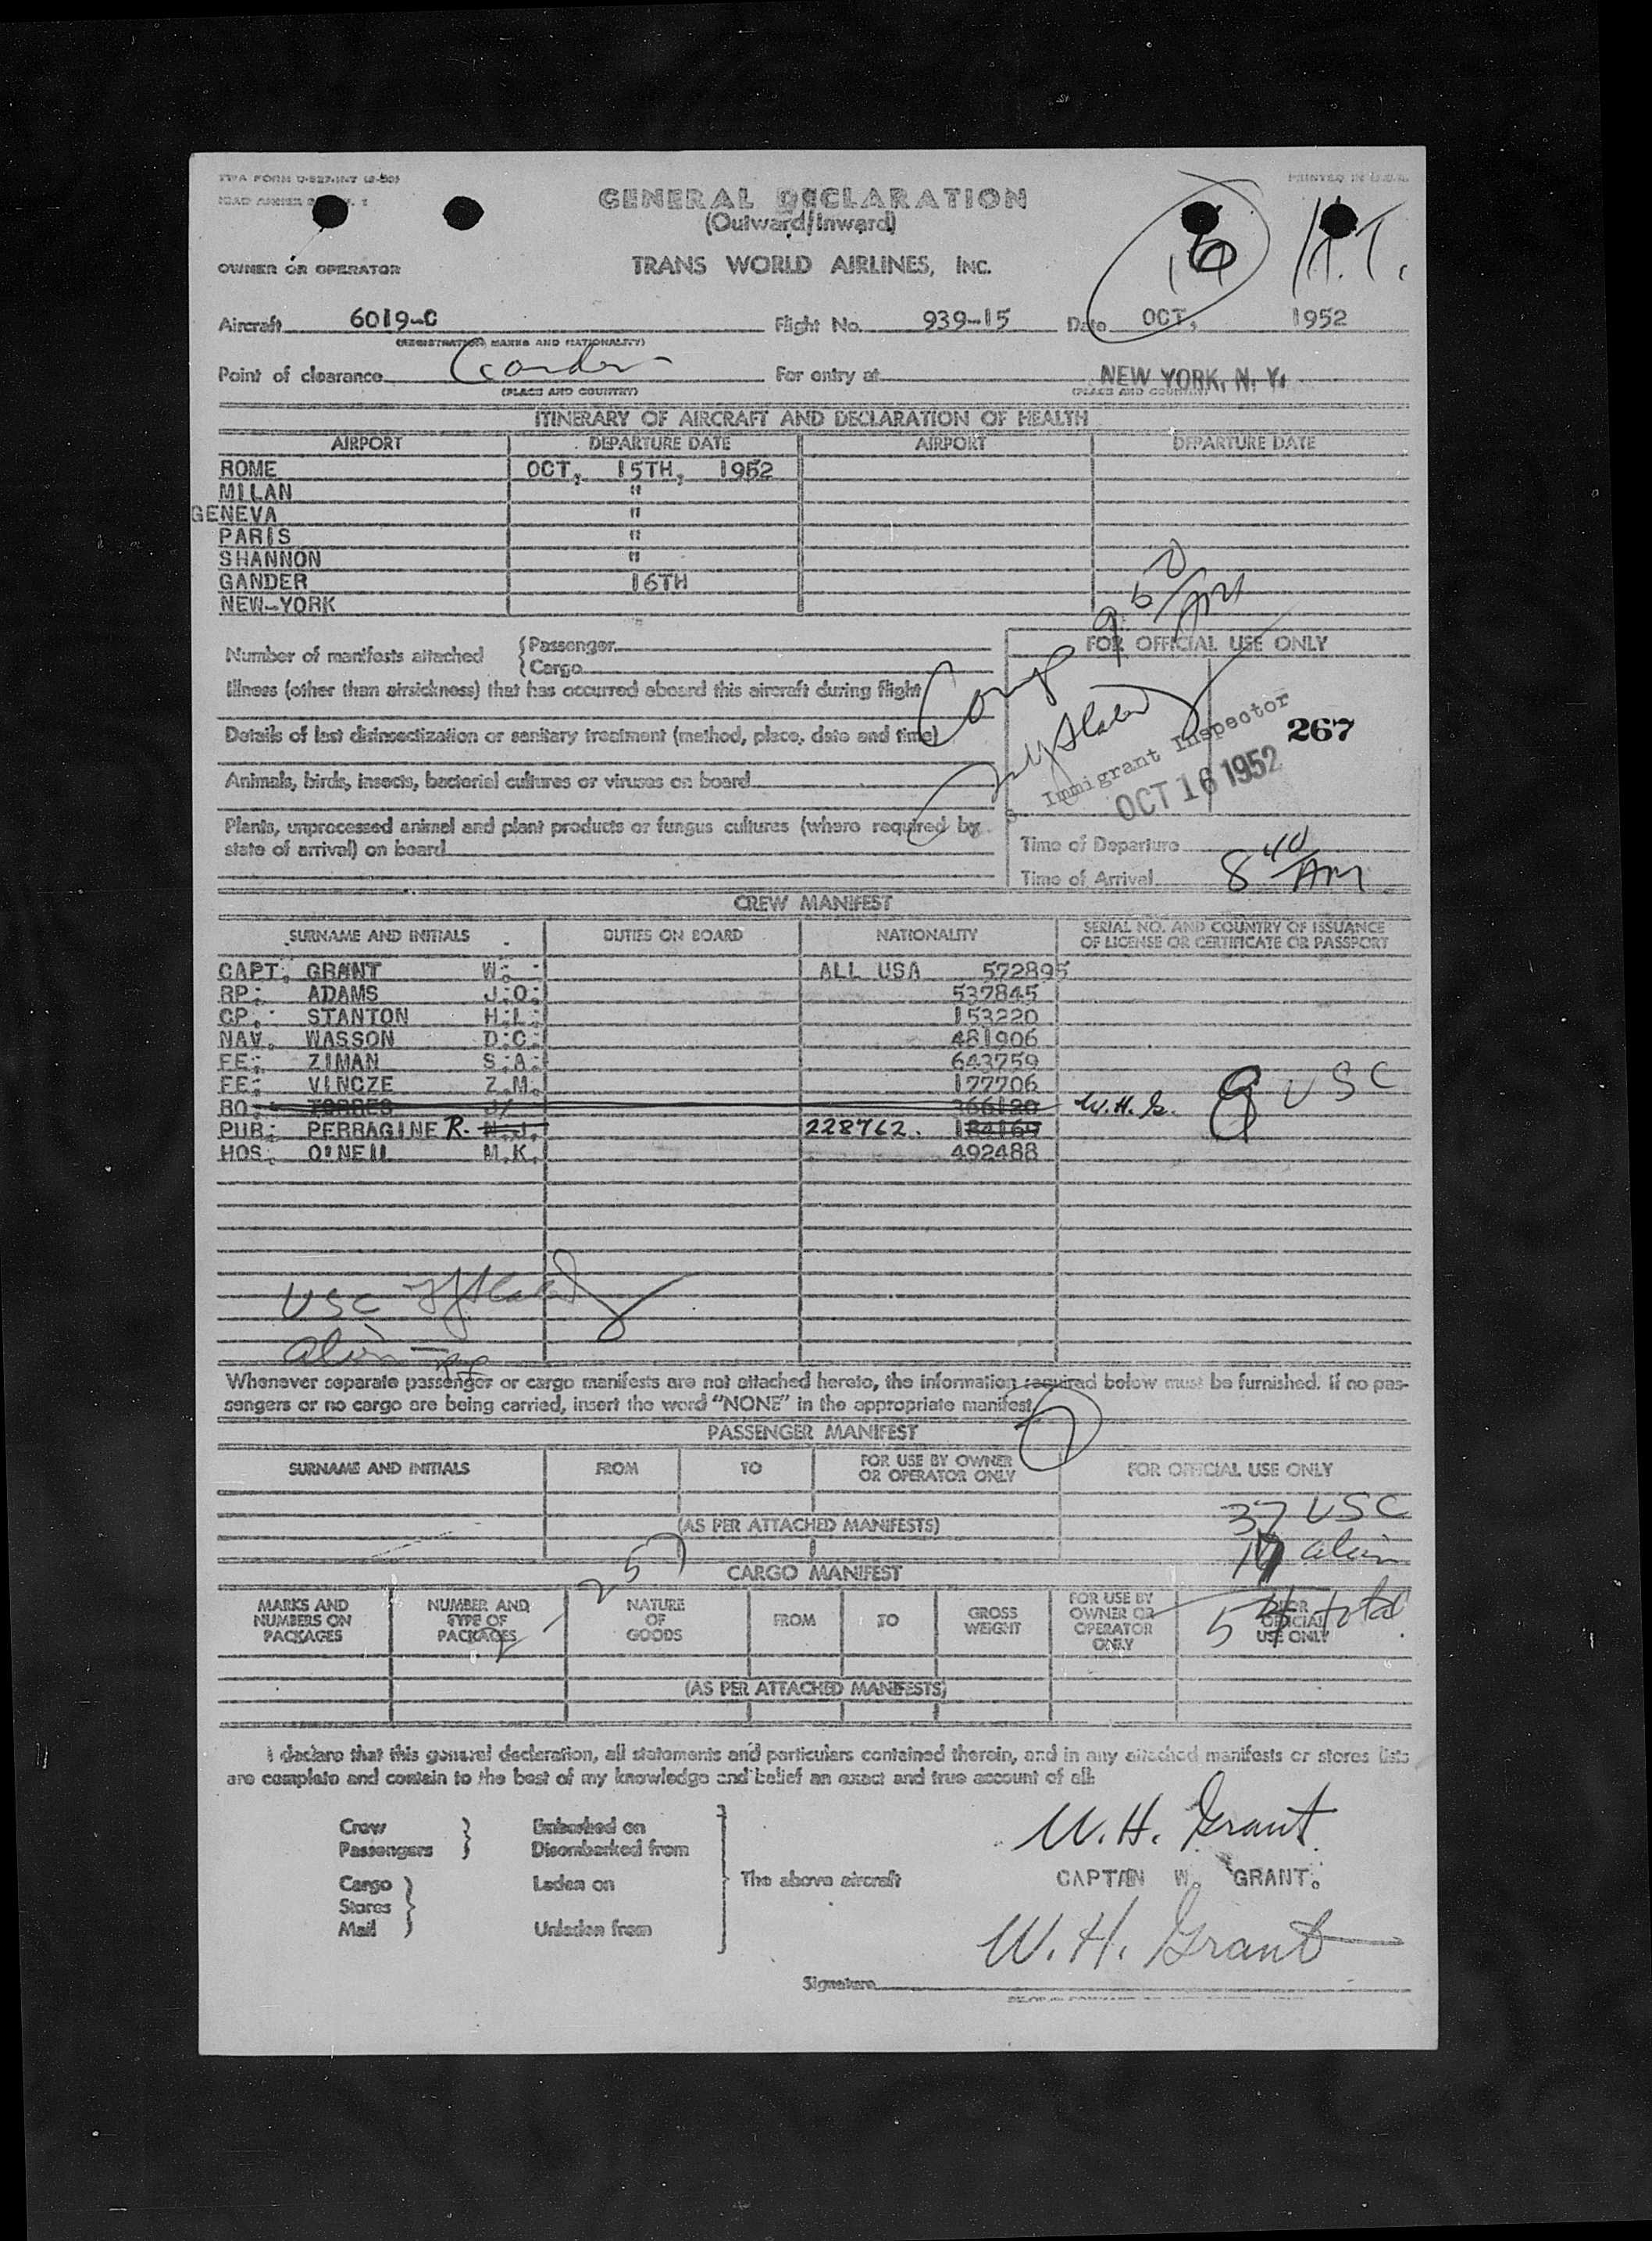 TWA FORM D-527-INT (2-50)
PRINTED IN U.S.A.
GENERAL DECLARATION
(Outward/Inward)
OWNER OR OPERATOR TRANS WORLD AIRLINES, INC.
16 H.T.
Aircraft 6019-C Flight No. 939-15 Date OCT, 1952
(REGISTRATION MARKS AND NATIONALITY)
Point of clearance Gander For entry at NEW YORK, N. Y.
(PLACE AND COUNTRY) (PLACE AND COUNTRY)
ITINERARY OF AIRCRAFT AND DECLARATION OF HEALTH
AIRPORT DEPARTURE DATE AIRPORT DEPARTURE DATE
ROME OCT, 15TH, 1952
MILAN "
GENEVA "
PARIS "
SHANNON "
GANDER 16TH
NEW-YORK
9 50/AM
Number of manifests attached { Passenger
{ Cargo
FOR OFFICIAL USE ONLY
Comp
Illness (other than airsickness) that has occurred aboard this aircraft during flight
Details of last disinsectization or sanitary treatment (method, place, date and time)
Immigrant Inspector
267
OCT 16 1952
Animals, birds, insects, bacterial cultures or viruses on board
Plants, unprocessed animal and plant products or fungus cultures (where required by
state of arrival) on board
Time of Departure
Time of Arrival 8 40/AM
CREW MANIFEST
SURNAME AND INITIALS DUTIES ON BOARD NATIONALITY SERIAL NO. AND COUNTRY OF ISSUANCE
OF LICENSE OR CERTIFICATE OR PASSPORT
CAPT. GRANT W. ALL USA 572895
RP. ADAMS J.O. 537845
CP. STANTON H.L. 153220
NAV. WASSON D.C. 481906
FE. ZIMAN S.A. 643759
FE. VINCZE Z.M. 177706
RO. TORRES J/ 366120 W.H.G. 9 USC
PUR. PERRAGINE R. N.J. 228762. 184169
HOS. O'NEIL M.K. 492488
USC
alien
Whenever separate passenger or cargo manifests are not attached hereto, the information required below must be furnished. If no pas-
sengers or no cargo are being carried, insert the word "NONE" in the appropriate manifest.
PASSENGER MANIFEST
SURNAME AND INITIALS FROM TO FOR USE BY OWNER
OR OPERATOR ONLY FOR OFFICIAL USE ONLY
37 USC
(AS PER ATTACHED MANIFESTS)
17 alien
54 total
CARGO MANIFEST
MARKS AND
NUMBERS ON
PACKAGES
NUMBER AND
TYPE OF
PACKAGES
NATURE
OF
GOODS
FROM TO GROSS
WEIGHT
FOR USE BY
OWNER OR
OPERATOR
ONLY
FOR
OFFICIAL
USE ONLY
(AS PER ATTACHED MANIFESTS)
I declare that this general declaration, all statements and particulars contained therein, and in any attached manifests or stores lists
are complete and contain to the best of my knowledge and belief an exact and true account of all:
Crew
Passengers } Embarked on
Disembarked from
Cargo
Stores
Mail } Laden on
Unladen from
The above aircraft
W. H. Grant
CAPTAN W. GRANT.
W. H. Grant
Signature